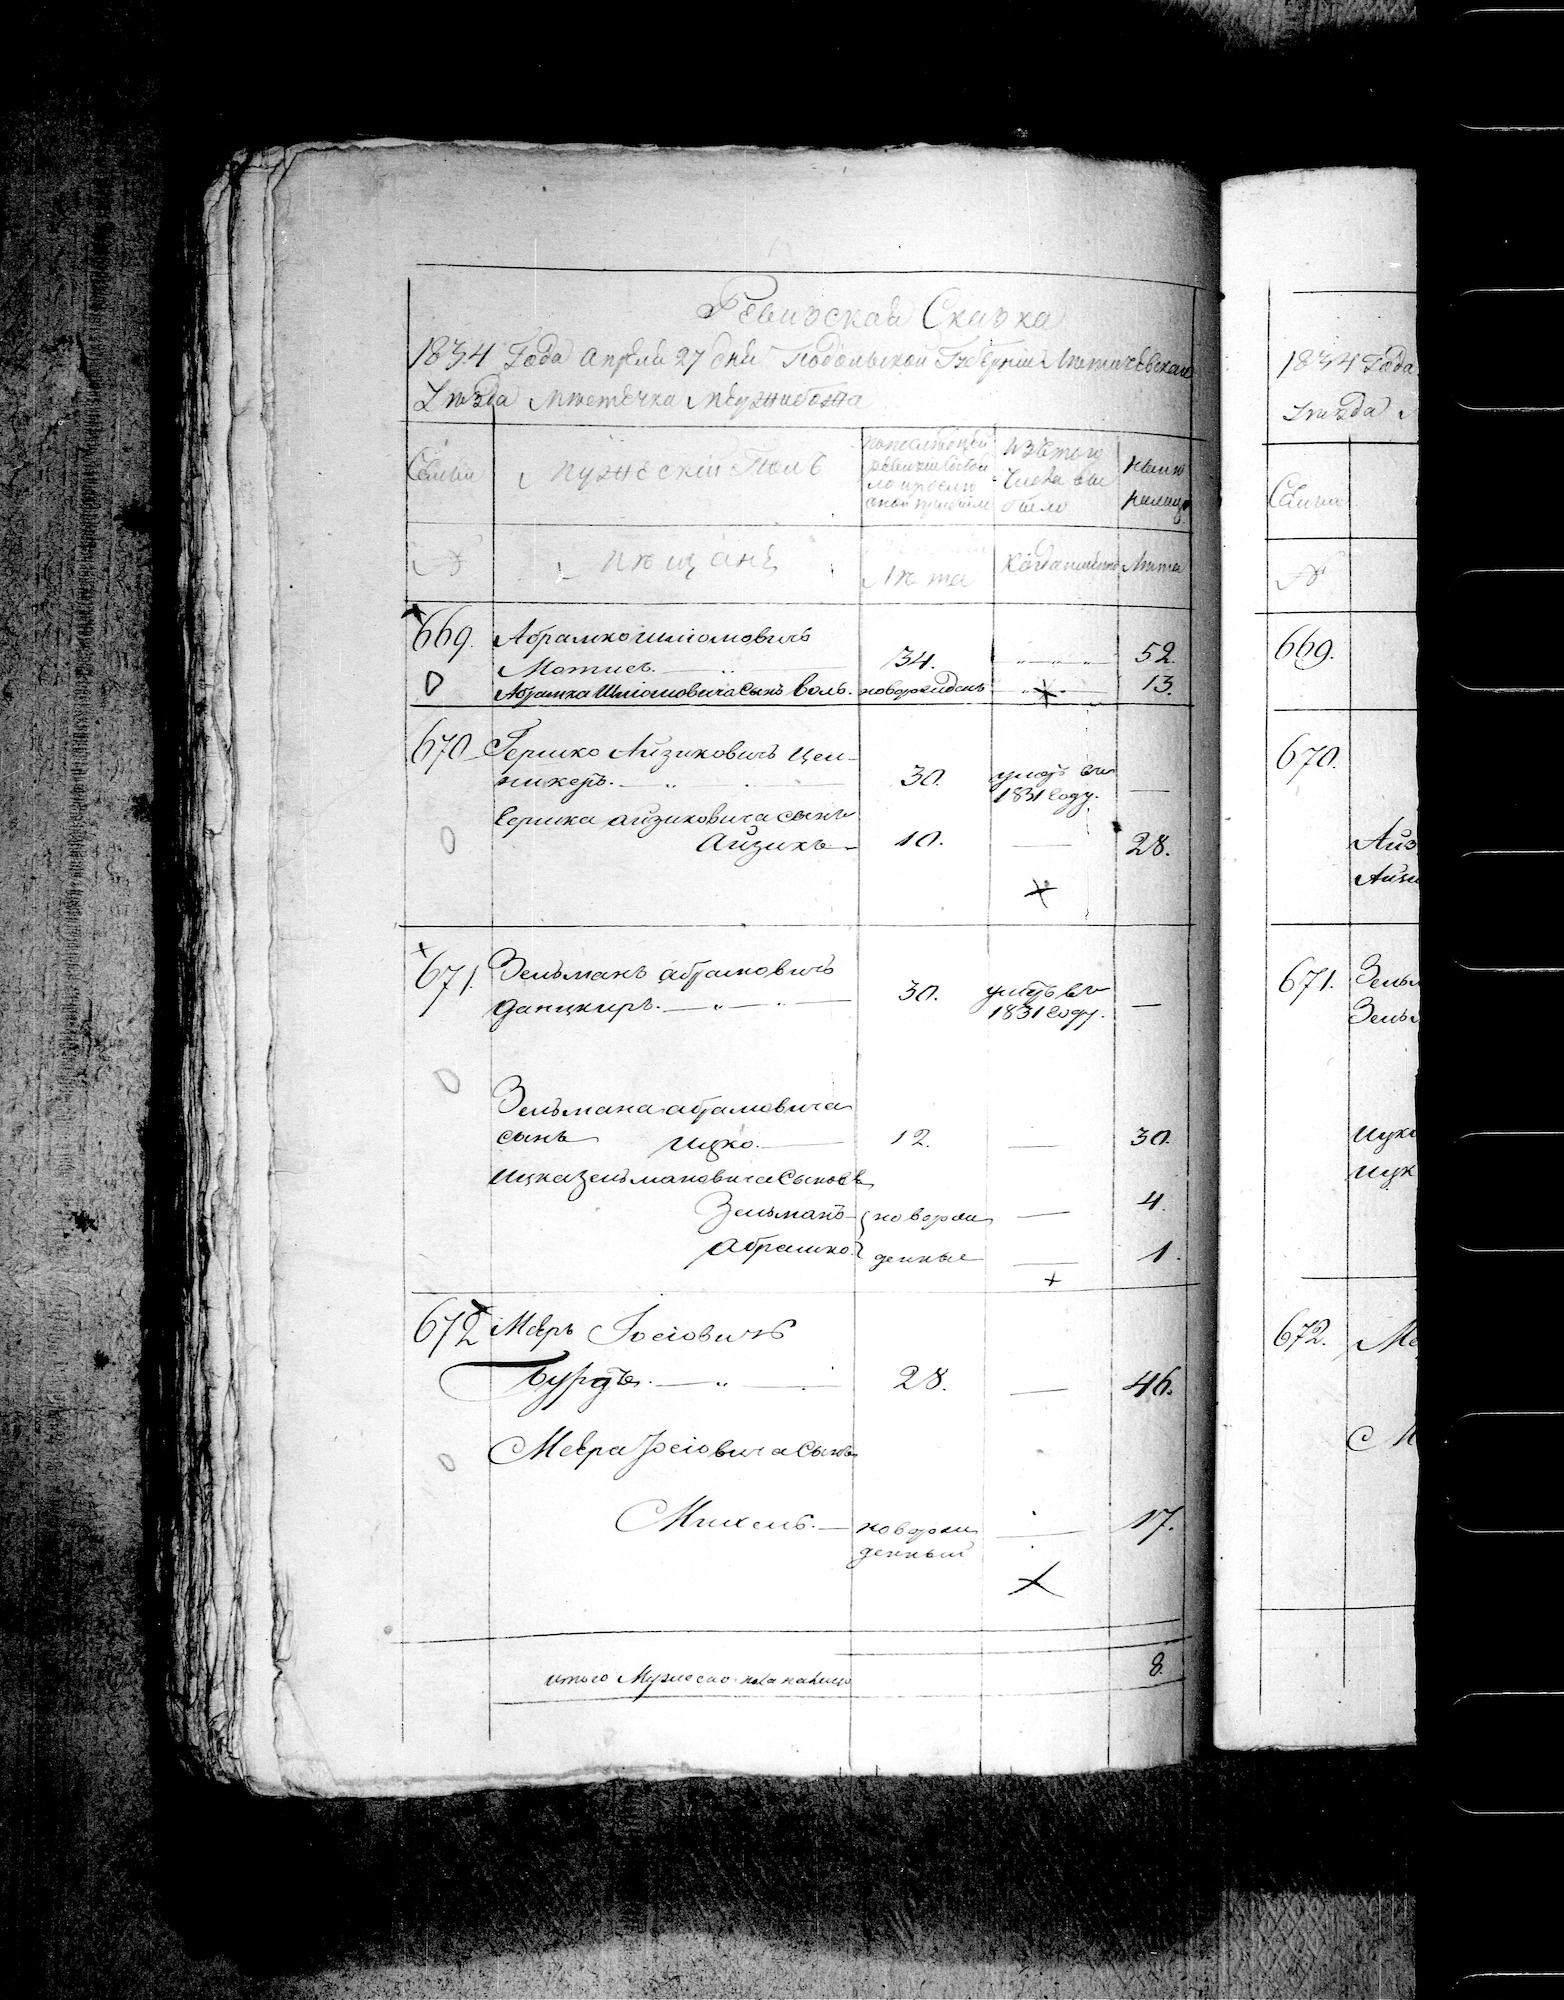 Ревизская Сказка
1834 Года Апреля 27 дня Подольской Губернии Летичевскаго
Уезда Местечка Межибожа
Семьи
Мужеский Полъ
по последней ревизии состояло и после оной прибыло
Изъ того числа выбыло
Ныне на лицо
№
Мещане
Лета
Когда именно
Лета
669. Абрамко Шліомовичъ
Матисъ. 34. 52.
Абрамка Шліомовича сынъ Воль. новорожденъ 13.
670 Гершко Айзиковичъ Цен-
никеръ. 30. умеръ въ
1831 году. —
Гершка Айзиковича сынъ
Айзикъ 10. — 28.
671. Зельманъ Абрамовичъ
Данцкиръ. 30. умеръ въ
1831 году. —
Зельмана Абрамовича
сынъ Ицко. 12. — 30.
Ицка Зельмановича сыновья
Зельманъ новорож — 4.
Абрамко денные — 1.
672 Мееръ Іосіовичъ
Бурдъ. 28. — 46.
Меера Іосіовича сынъ
Михель. новорож — 17.
денный
итого Мужеска пола на лицо 8.
1834 Года
Уезда
Семьи
№
669.
670.
671.
672.